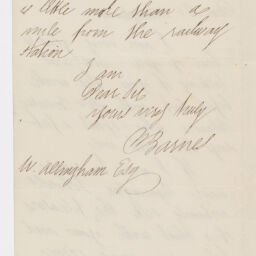 is little more than a
mile from the railway
station
I am
Dear Sir
yours very truly
W Barnes
W. Allingham Esq